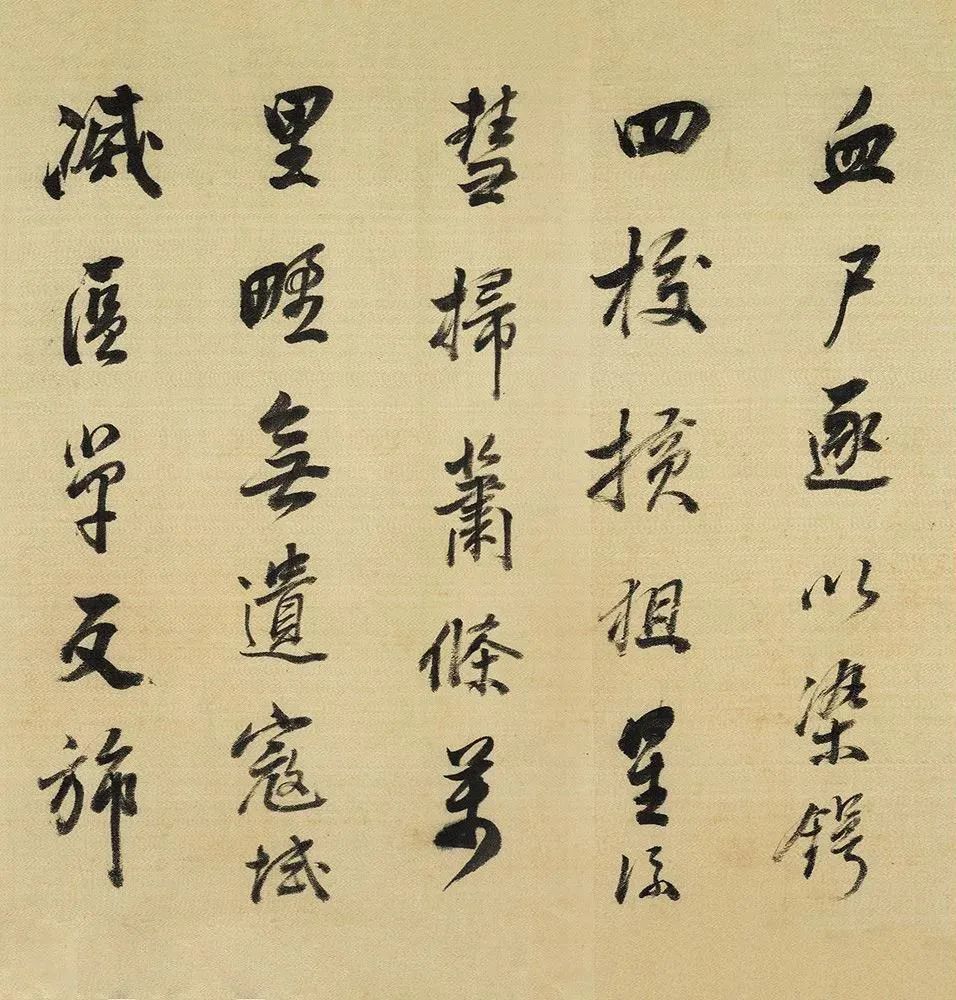 血尸逐以染鍔
四校橫徂星流
彗掃蕭條萬
里野無遺寇域
滅區單反旆